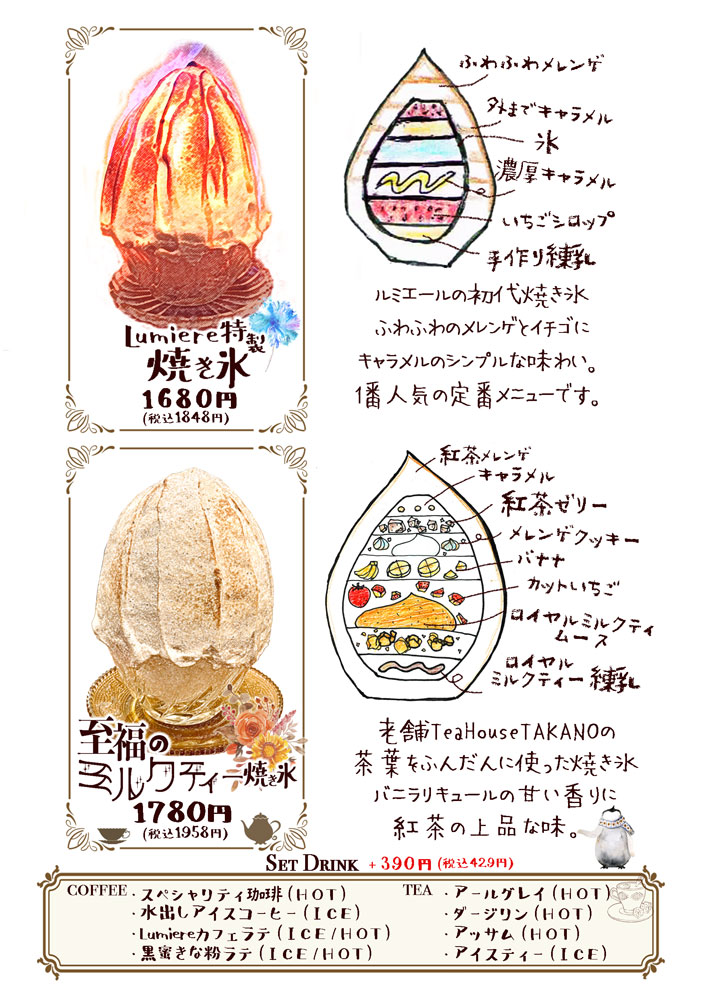 ふわふわメレンゲ
外までキャラメル
氷
濃厚キャラメル
いちごシロップ
手作り練乳
Lumiere特製
焼き氷
1680円
(税込1848円)
ルミエールの初代焼き氷
ふわふわのメレンゲとイチゴに
キャラメルのシンプルな味わい。
1番人気の定番メニューです。
紅茶メレンゲ
キャラメル
紅茶ゼリー
メレンゲクッキー
バナナ
カットいちご
ロイヤルミルクティ
ムース
ロイヤル
ミルクティー練乳
至福の
ミルクティー焼き氷
1780円
(税込1958円)
老舗TeaHouseTAKANOの
茶葉をふんだんに使った焼き氷
バニラリキュールの甘い香りに
紅茶の上品な味。
SET DRINK +390円(税込429円)
COFFEE ・スペシャリティ珈琲(HOT)
・水出しアイスコーヒー(ICE)
・Lumiereカフェラテ(ICE/HOT)
・黒蜜きな粉ラテ(ICE/HOT)
TEA ・アールグレイ(HOT)
・ダージリン(HOT)
・アッサム(HOT)
・アイスティー(ICE)